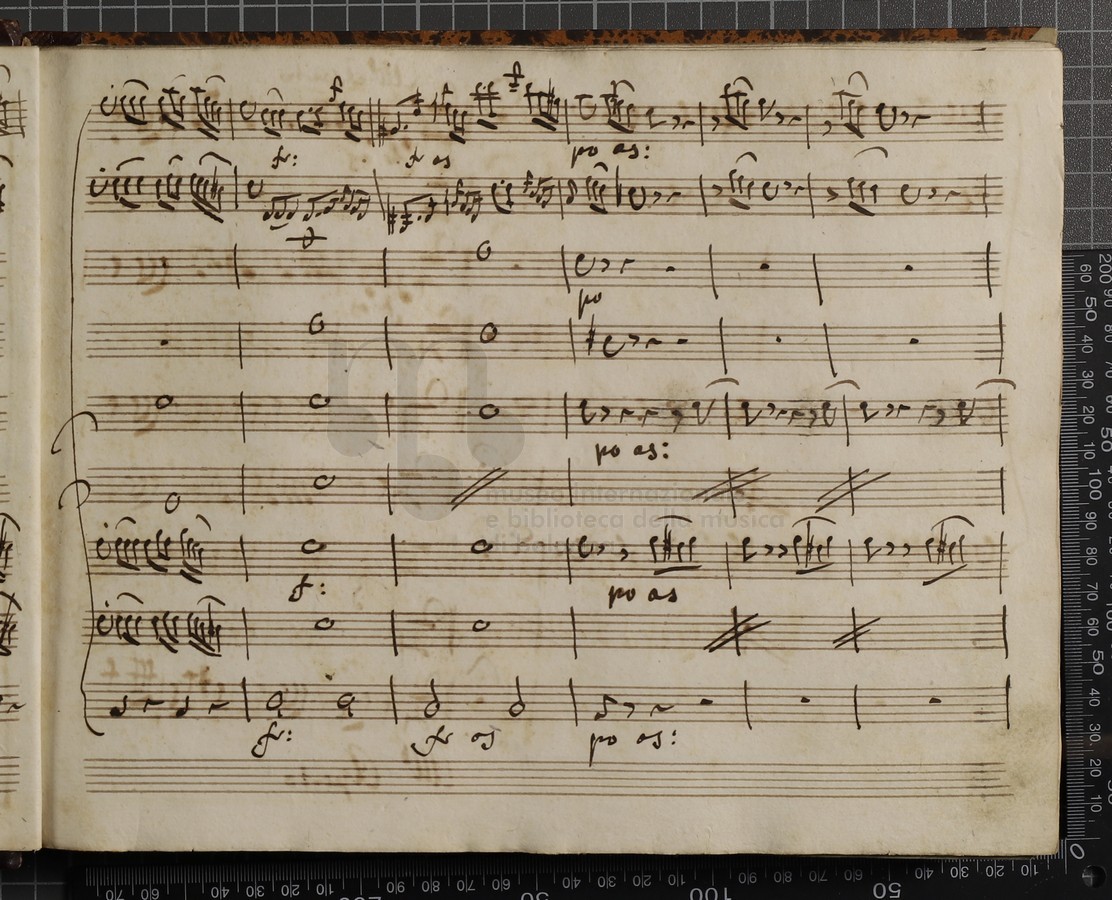 f
f
fr: f as po as:
po
po as:
museo internazionale
e biblioteca della musica
di bologna
f: po as
fr: fr as po as: